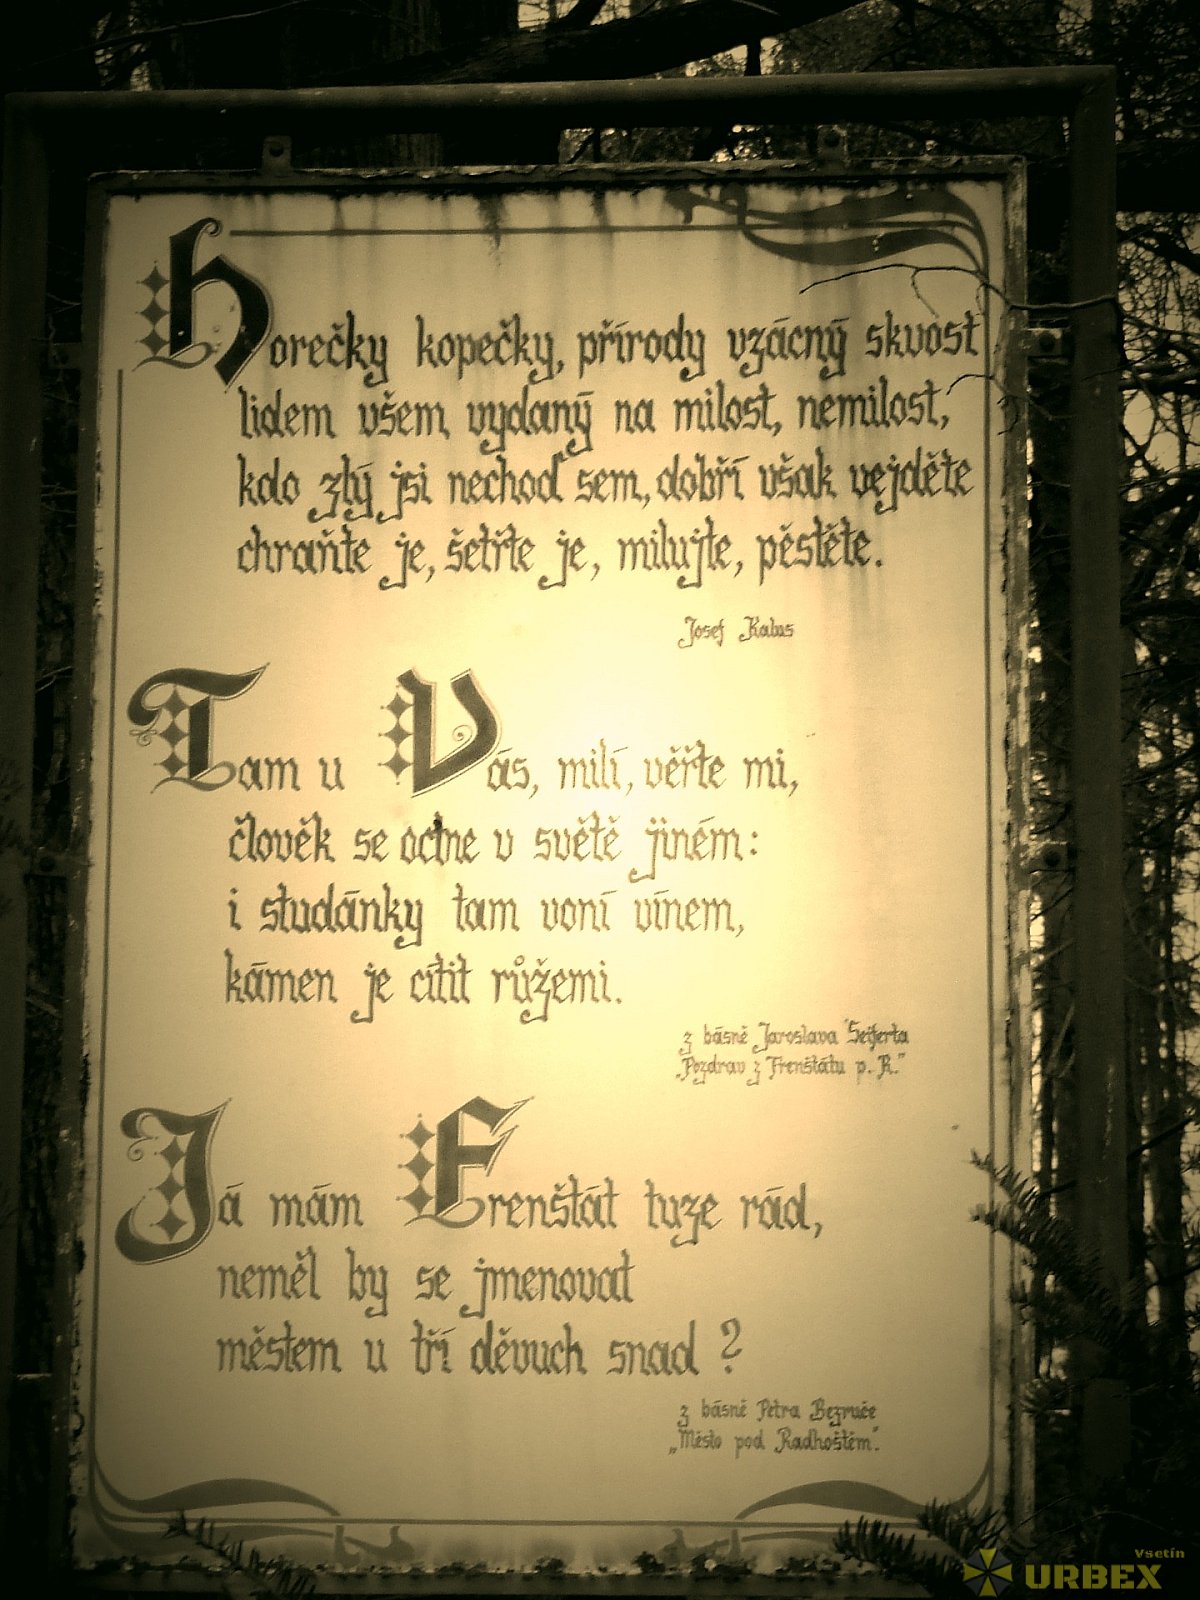 Horečky kopečky, přírody vzácný skvost
lidem všem vydaný na milost, nemilost,
kdo zlý jsi nechoď sem, dobří však vejděte
chraňte je, šetřte je, milujte, pěstěte.
Josef Kalus
Tam u Vás, milí, věřte mi,
člověk se octne v světě jiném:
i studánky tam voní vínem,
kámen je cítit růžemi.
z básně Jaroslava Seiferta
„Pozdrav z Frenštátu p. R."
Já mám Frenštát tuze rád,
neměl by se jmenovat
městem u tří děvuch snad ?
z básně Petra Bezruče
„Město pod Radhoštěm".
Vsetín
URBEX